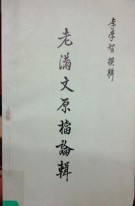 李學智撰輯
老滿文原檔論輯